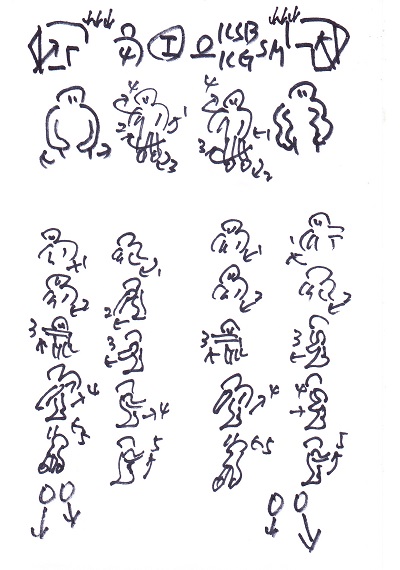 4 I KSB
KG SM
4 4
2 1 2 1
3 3 2
1 1 1 1
2 2
3 3 3 3
4 4 4 4
5 5 5 5